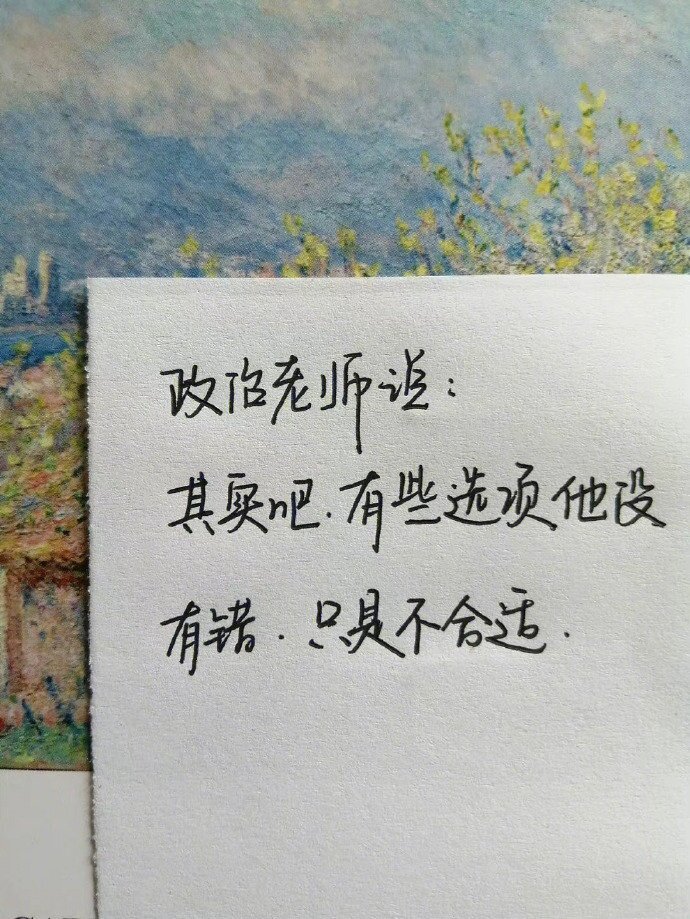 政治老师说：
其实吧.有些选项他没
有错.只是不合适.